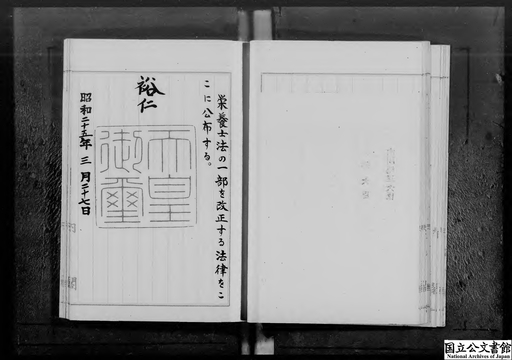 栄養士法の一部を改正する法律をこ
こに公布する。
裕仁
天皇御璽
昭和二十五年三月二十七日
国立公文書館
National Archives of Japan